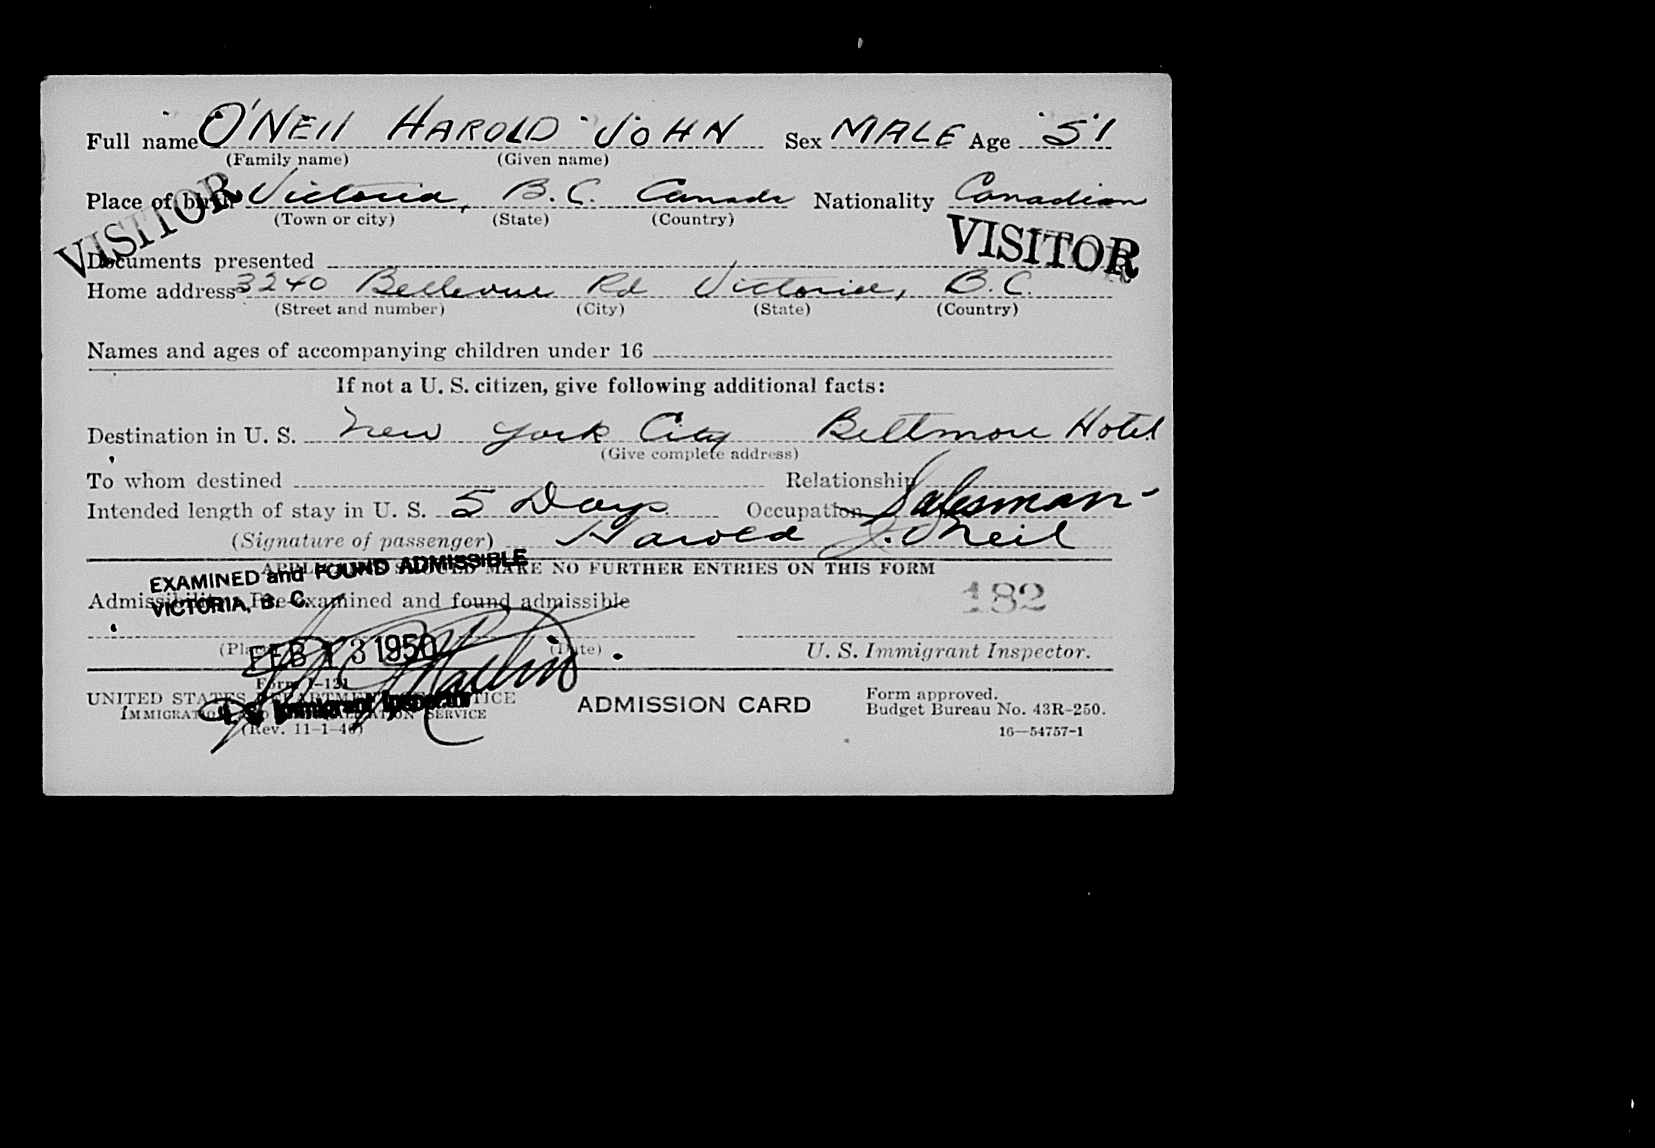 Full name O'NEIl HAROLD JOHN Sex MALE Age 51
(Family name) (Given name)
Place of birth Victoria, B.C. Canada Nationality Canadian
(Town or city) (State) (Country)
VISITOR VISITOR
Documents presented
Home address 3240 Bellevue Rd Victoria, B.C.
(Street and number) (City) (State) (Country)
Names and ages of accompanying children under 16
If not a U. S. citizen, give following additional facts:
Destination in U. S. New York City Biltmore Hotel
(Give complete address)
To whom destined Relationship
Intended length of stay in U. S. 5 Days Occupation Salesman
(Signature of passenger) Harold J. O'Neil
SHOULD MAKE NO FURTHER ENTRIES ON THIS FORM
EXAMINED and FOUND ADMISSIBLE
Admissibility: Pre-examined and found admissible
VICTORIA, B. C.
182
(Place) (Date) U. S. Immigrant Inspector.
FEB 13 1950
Form I-121
UNITED STATES DEPARTMENT OF JUSTICE
IMMIGRATION AND NATURALIZATION SERVICE
U. S. Immigrant Inspector
(Rev. 11-1-46)
ADMISSION CARD
Form approved.
Budget Bureau No. 43R-250.
16—54757-1